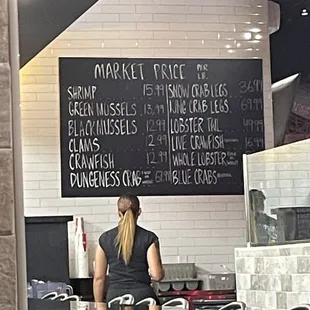 MARKET PRICE PER LB.
SHRIMP 15.99
GREEN MUSSELS 13.99
BLACK MUSSELS 12.99
CLAMS 12.99
CRAWFISH 12.99
DUNGENESS CRAB
SNOW CRAB LEGS 36.99
KING CRAB LEGS 69.99
LOBSTER TAIL 49.99
LIVE CRAWFISH
WHOLE LOBSTER
BLUE CRABS